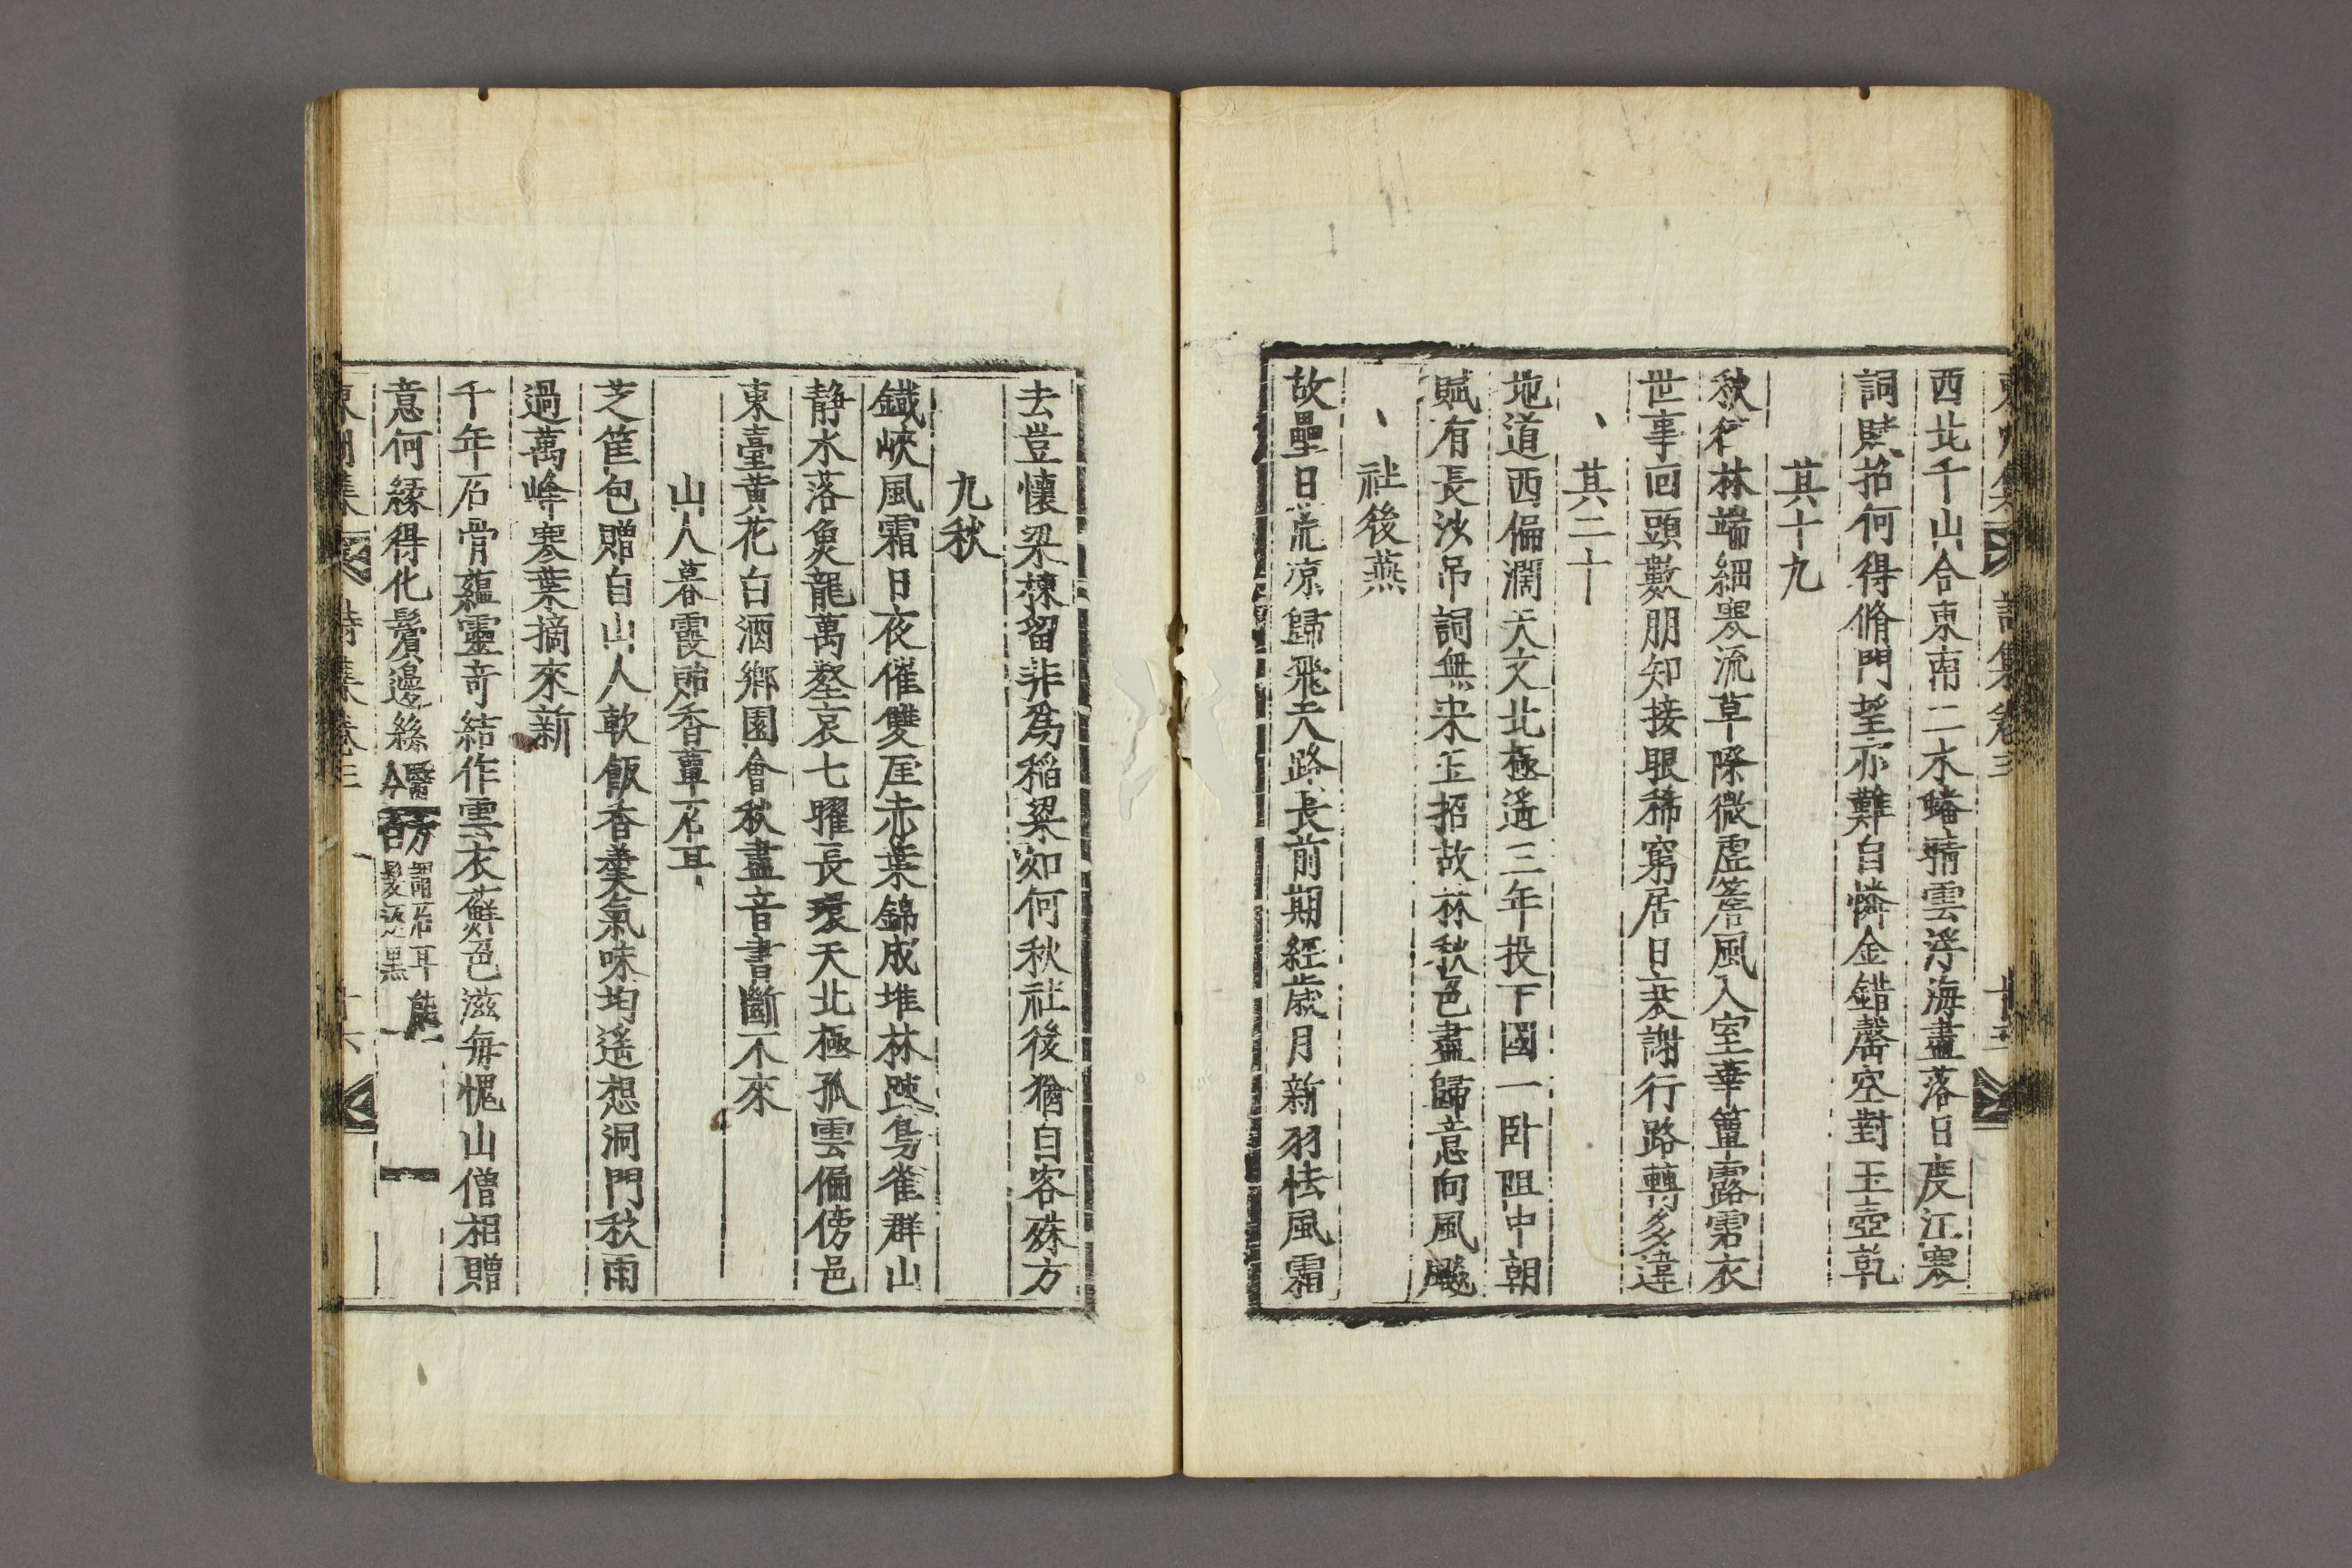 西北千山合東南二水蟠晴雲浮海盡落日度江寒
詞賦招何得脩門望亦難自憐金錯罄空對玉壺乾
其十九
秋衍林端細寒流草際微虛簷風入室華簟露霑衣
世事回頭數朋知接眼稀窮居日衰謝行路轉多違
其二十
地道西偏濶天文北極遙三年投下國一卧阻中朝
賦有長沙吊詞無宋玉招故林秋色盡歸意向風飈
社後燕
故壘日荒凉歸飛天路長前期經歲月新羽怯風霜
去豈懷梁棟留非爲稲粱如何秋社後猶自客殊方
九秋
鐵峽風霜日夜催雙厓赤葉錦成堆林踈鳥雀群山
静水落魚龍萬壑哀七曜長環天北極孤雲偏傍邑
東臺黄花白酒鄉園會秋盡音書斷不來
山人暮霞貽香蕈石耳
芝筐包贈自山人軟飯香羹氣味均遙想洞門秋雨
過萬峰寒葉摘來新
千年石骨蘊靈奇結作雲衣蘚色滋毎愧山僧相贈
意何緣得化鬢邊絲 醫方 謂石耳能 髮返黒
詩集卷三